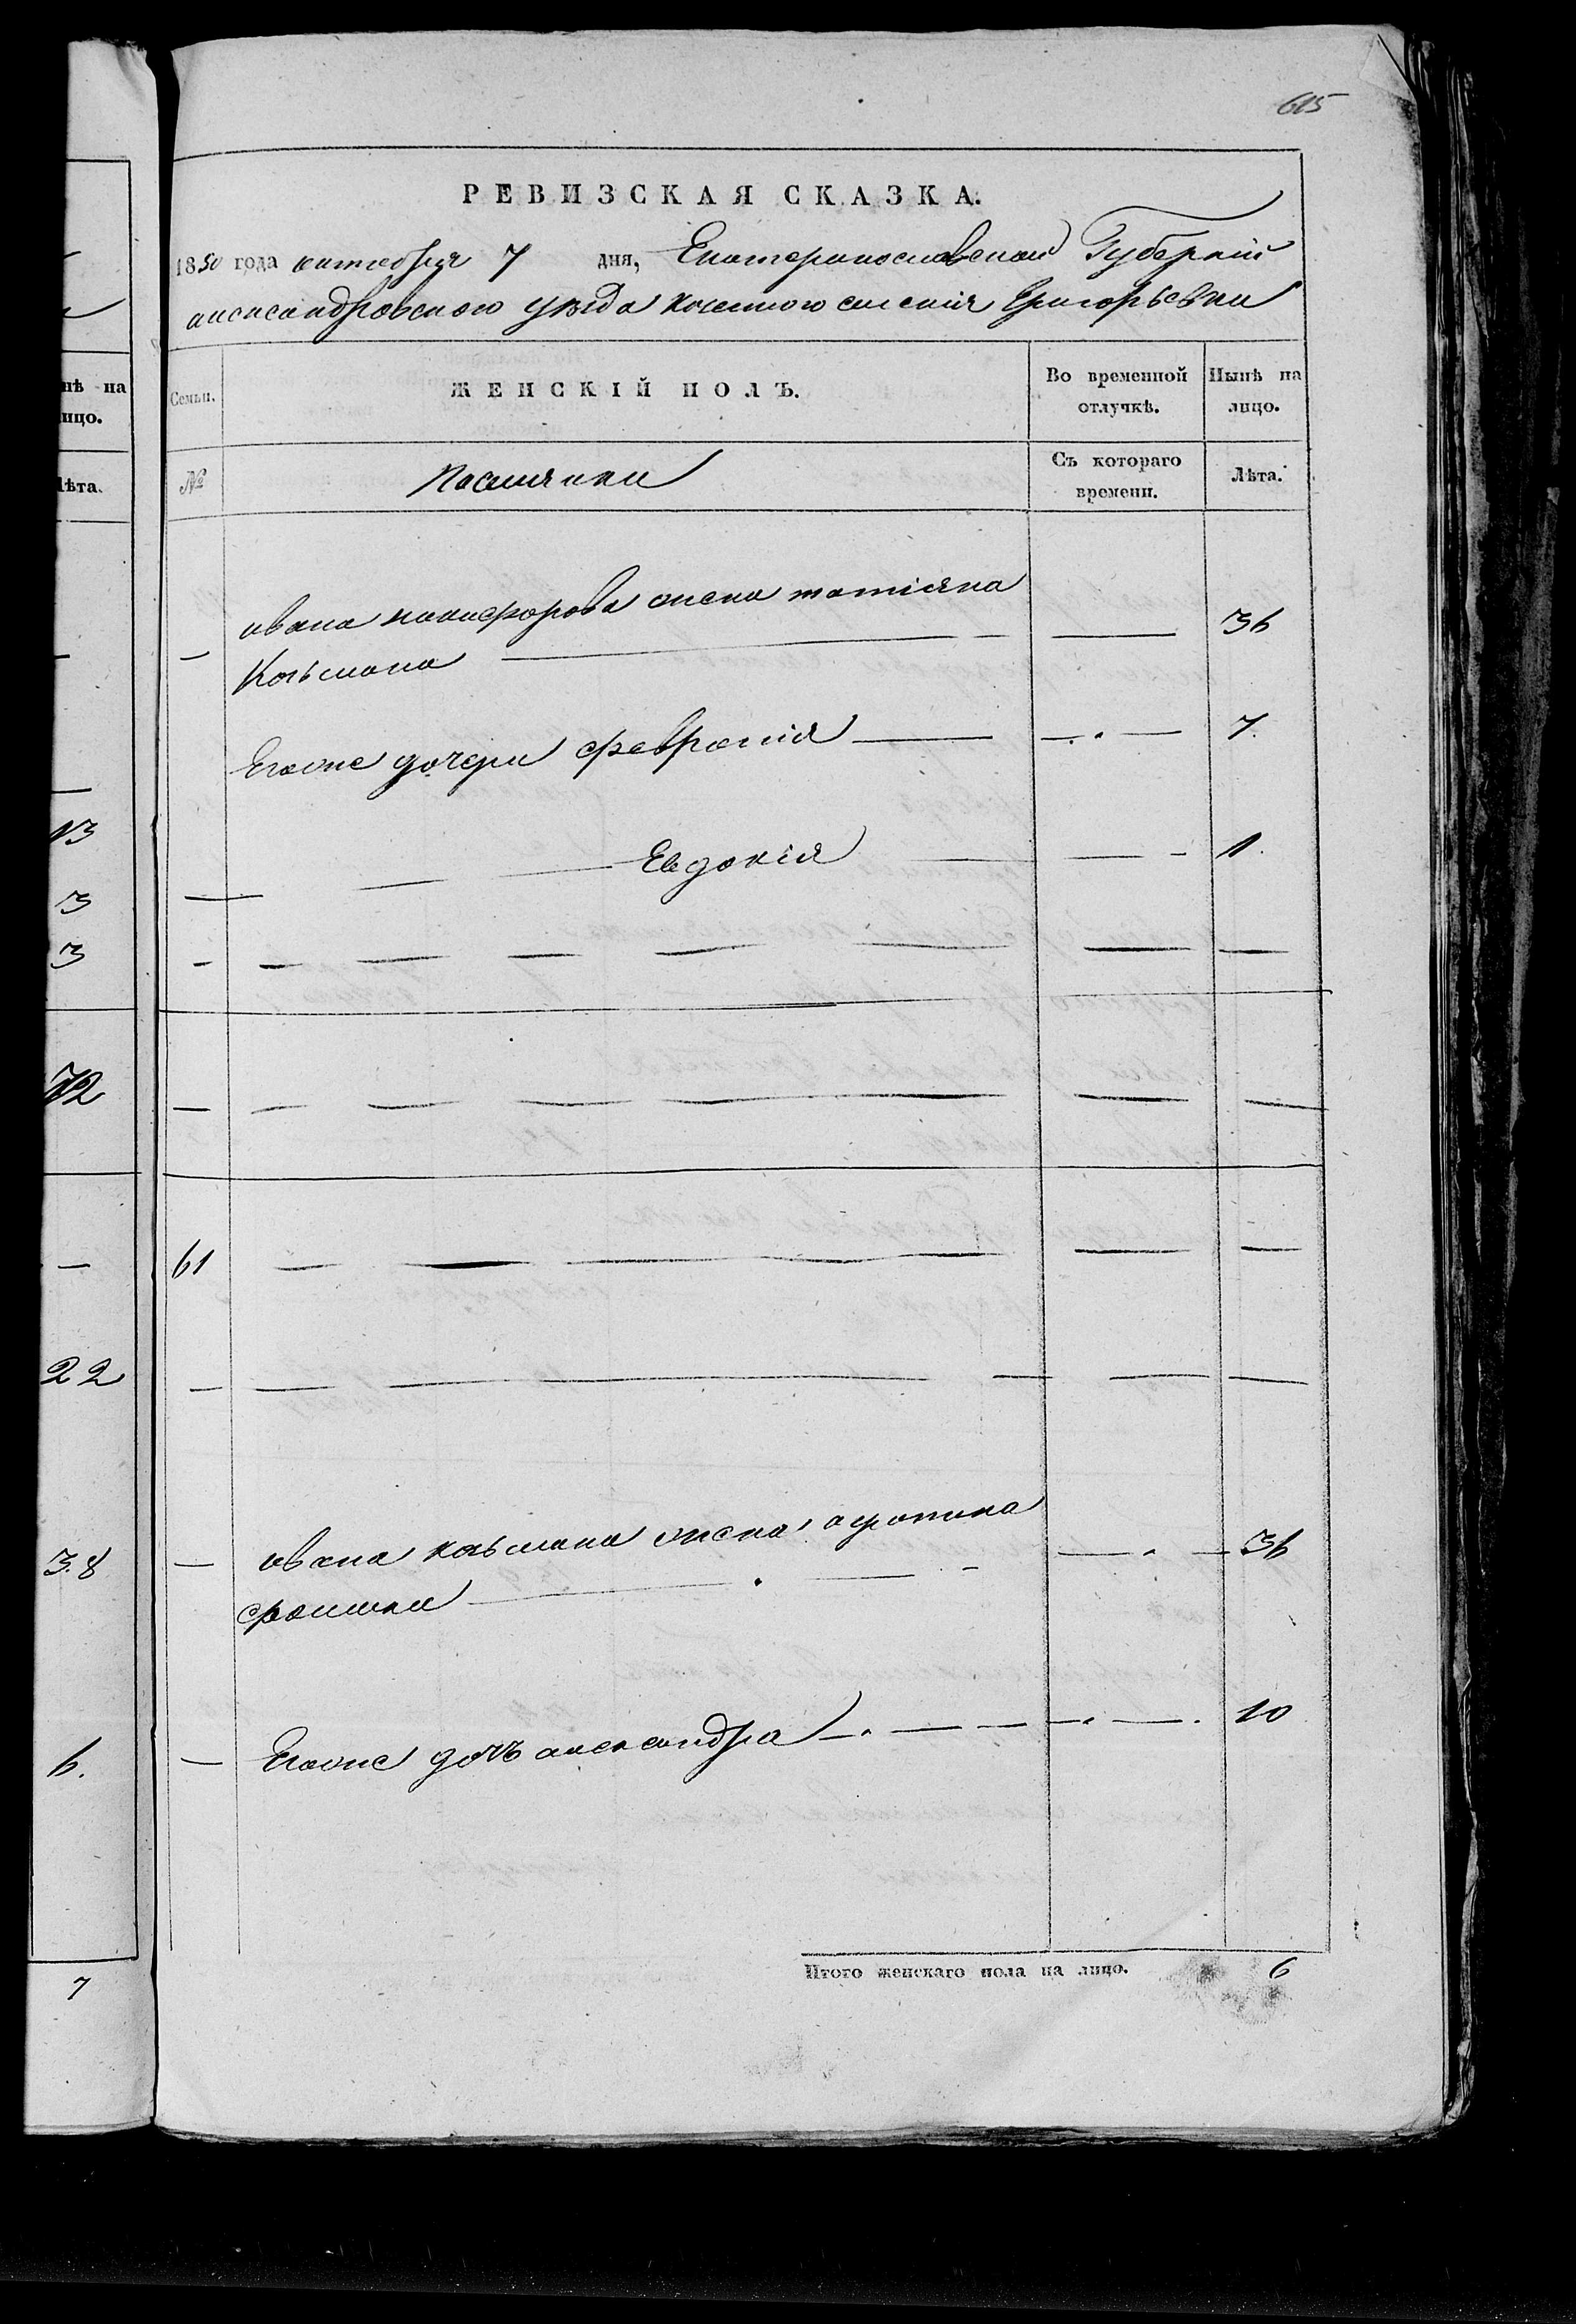 615
РЕВИЗСКАЯ СКАЗКА.
1850 года октября 7 дня, Екатеринославской Губерніи
александровского уезда казенного селенія Григорьевки
нѣ на
лицо.
Лѣта.
Семьи.
ЖЕНСКІЙ ПОЛЪ.
Во временной отлучкѣ.
Нынѣ на лицо.
№
Поселянки
Съ котораго времени.
Лѣта.
ивана никифорова жена татіяна 36
Козьмина
Егоже дочери февронія 7.
Евдокія 1.
13
3
3
72
61
22
38
ивана козьмина жена 36
Егоже дочь александра 10
6.
Итого женскаго пола на лицо. 6
7